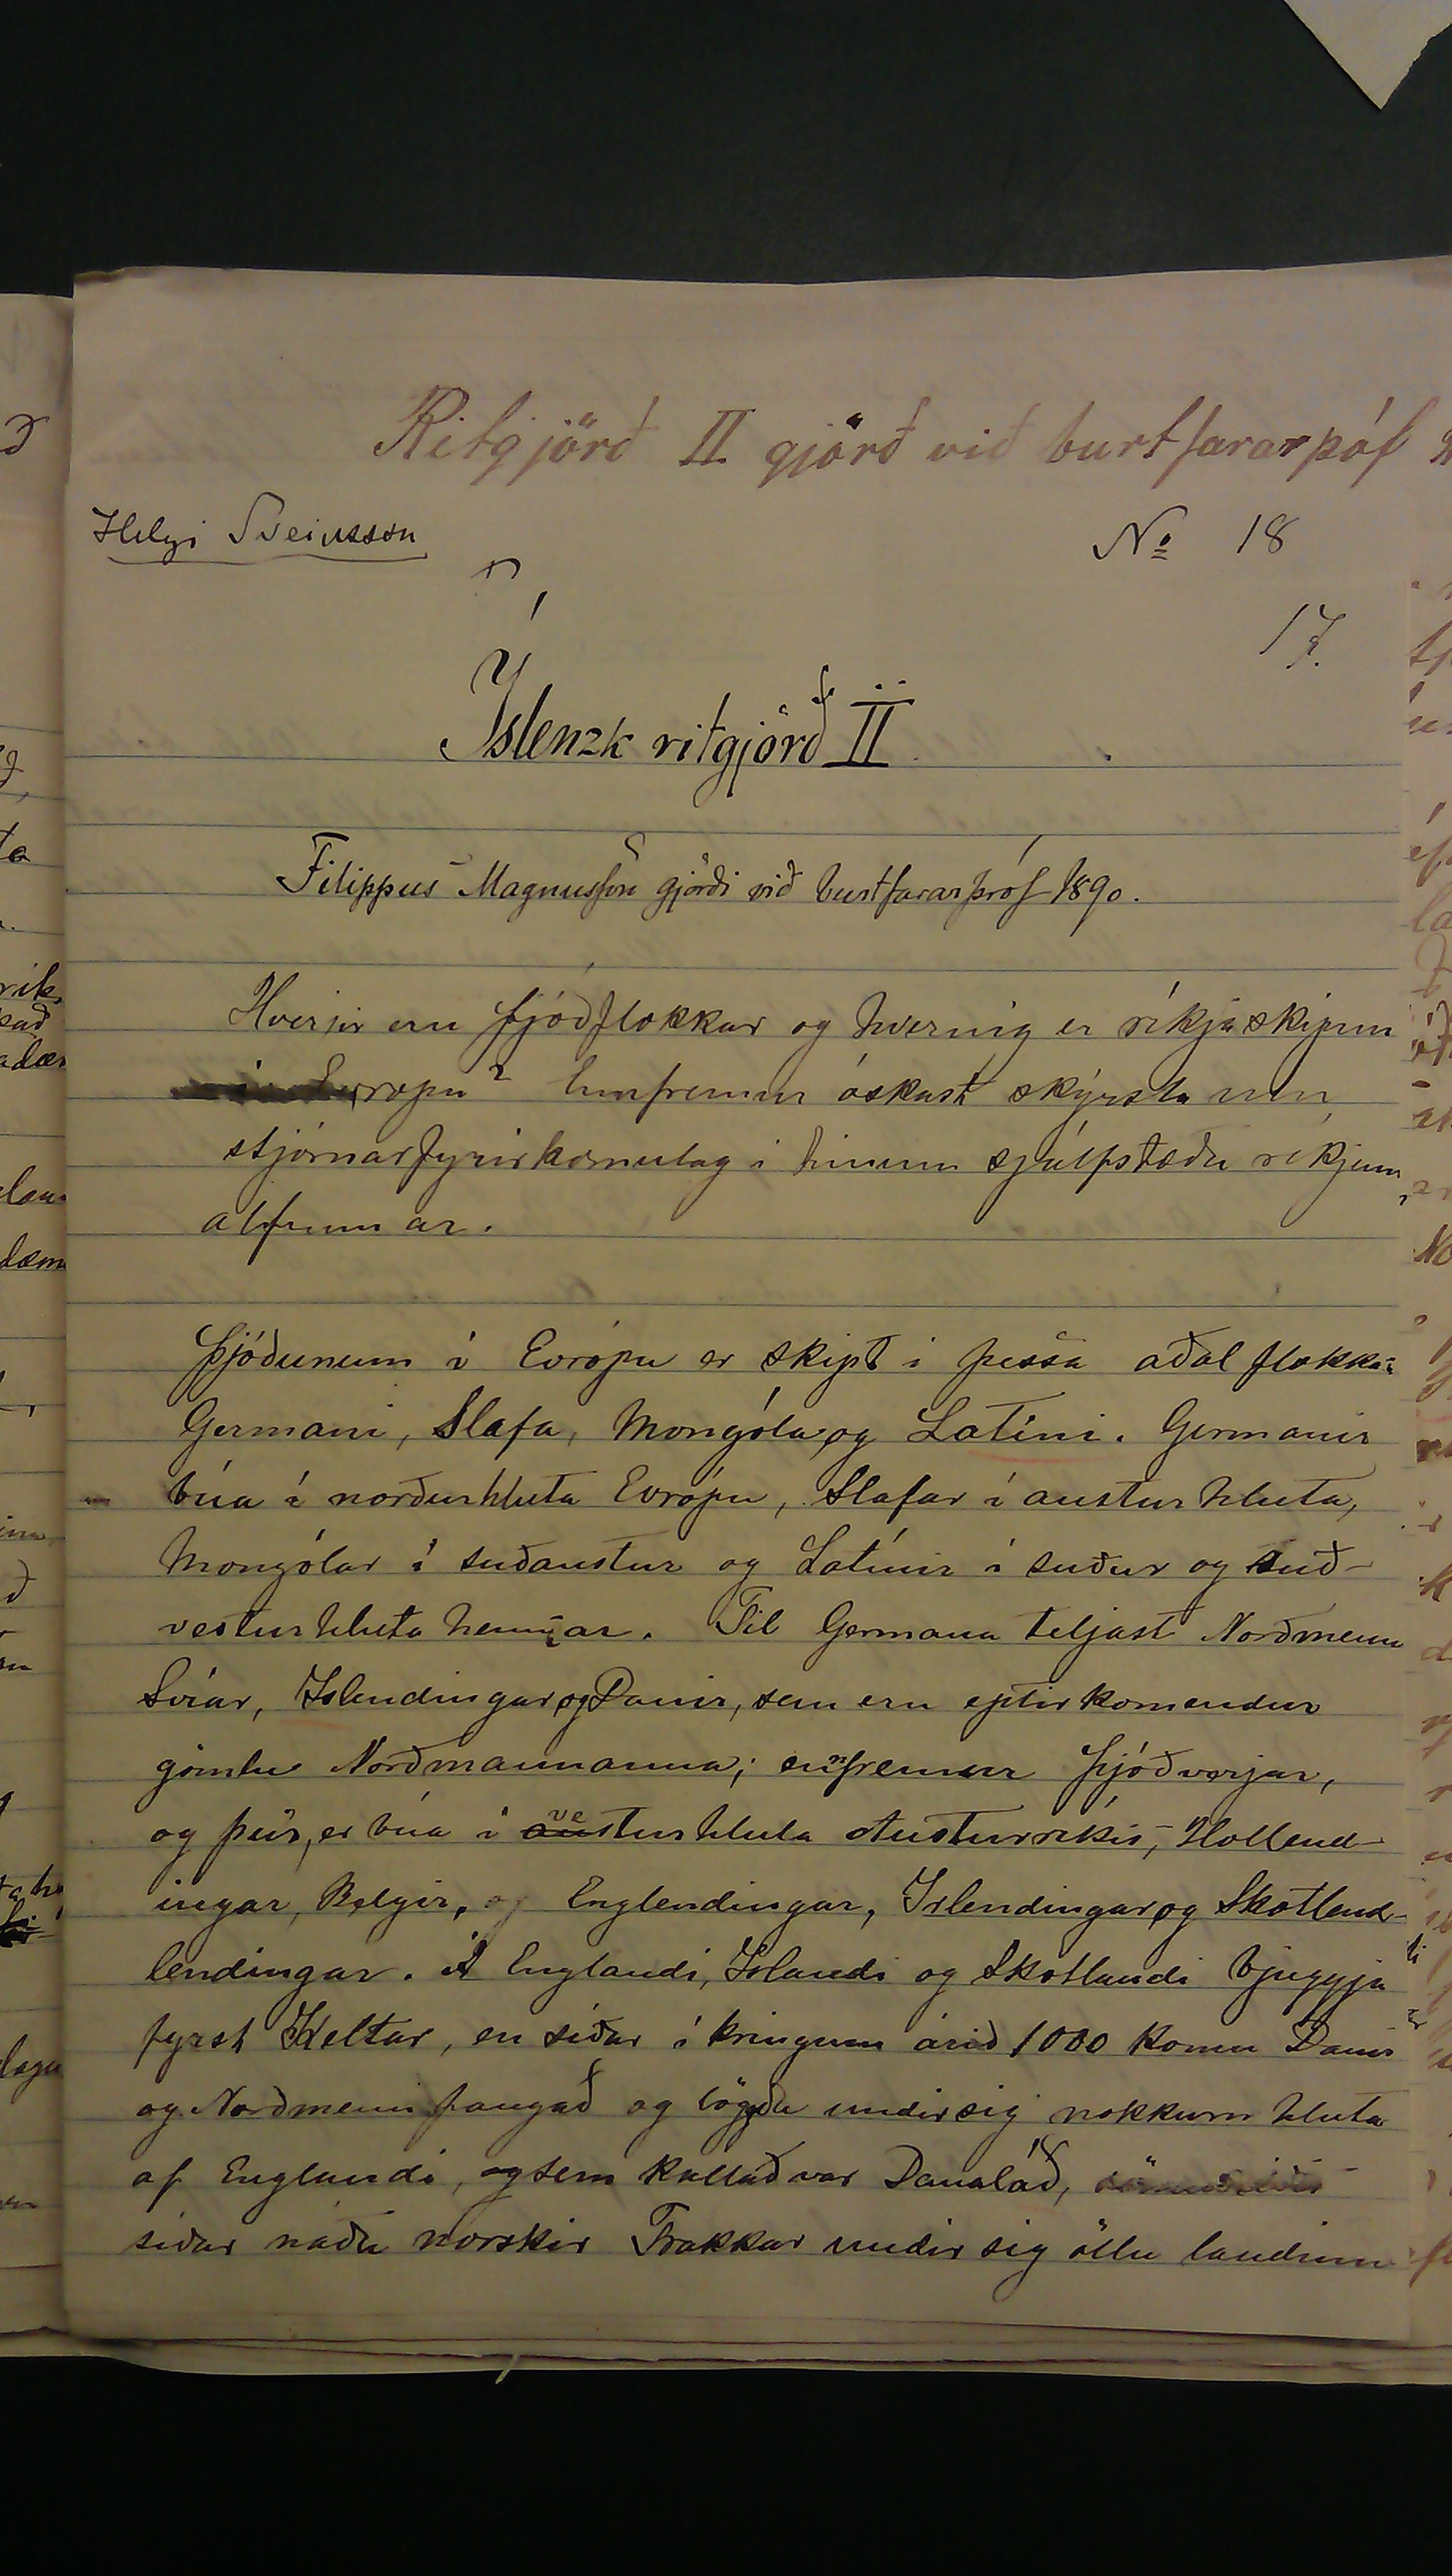 Ritgjörð II gjörð við burtfararpóf
Helgi Sveinsson
No 18
17.
Íslenzk ritgjörð II
Filippus Magnusson gjörði við burtfararpróf 1890.
Hverjir eru þjóðflokkar og hvernig er ríkjaskipun
Evropu? Ennfremur óskast skýrsla um
stjórnarfyrirkomulag i hinum sjálfstæðu ríkjum
alfunnar.
Þjóðunum i Evrópu er skipt i þessa aðal flokka:
Germani, Slafa, Mongóla og Latíni. Germanir
búa í norðurhluta Evrópu, Slafar í austurhluta,
Mongólar í suðaustur og Latínir í suður og suð-
vesturhluta hennar. Til Germana teljast Norðmenn
Svíar, Islendingar og Danir, sem eru eptirkomendur
gömlu Norðmannanna; ennfremur Þjóðverjar,
og þeir, er búa i vesturhluta Austurríkis, Hollend-
ingar, Belgir, og Englendingar, Irlendingar og Skotlend-
lendingar. Á Englandi, Irlandi og Skotlandi bjuggju
fyrst Keltar, en síðar í kringum árið 1000 komu Danir
og Norðmenn þangað og lögðu undir sig nokkurn hluta
af Englandi, og sem kallað var Danalág,
síðar náðu norskir Frakkar undir sig öllu landinu